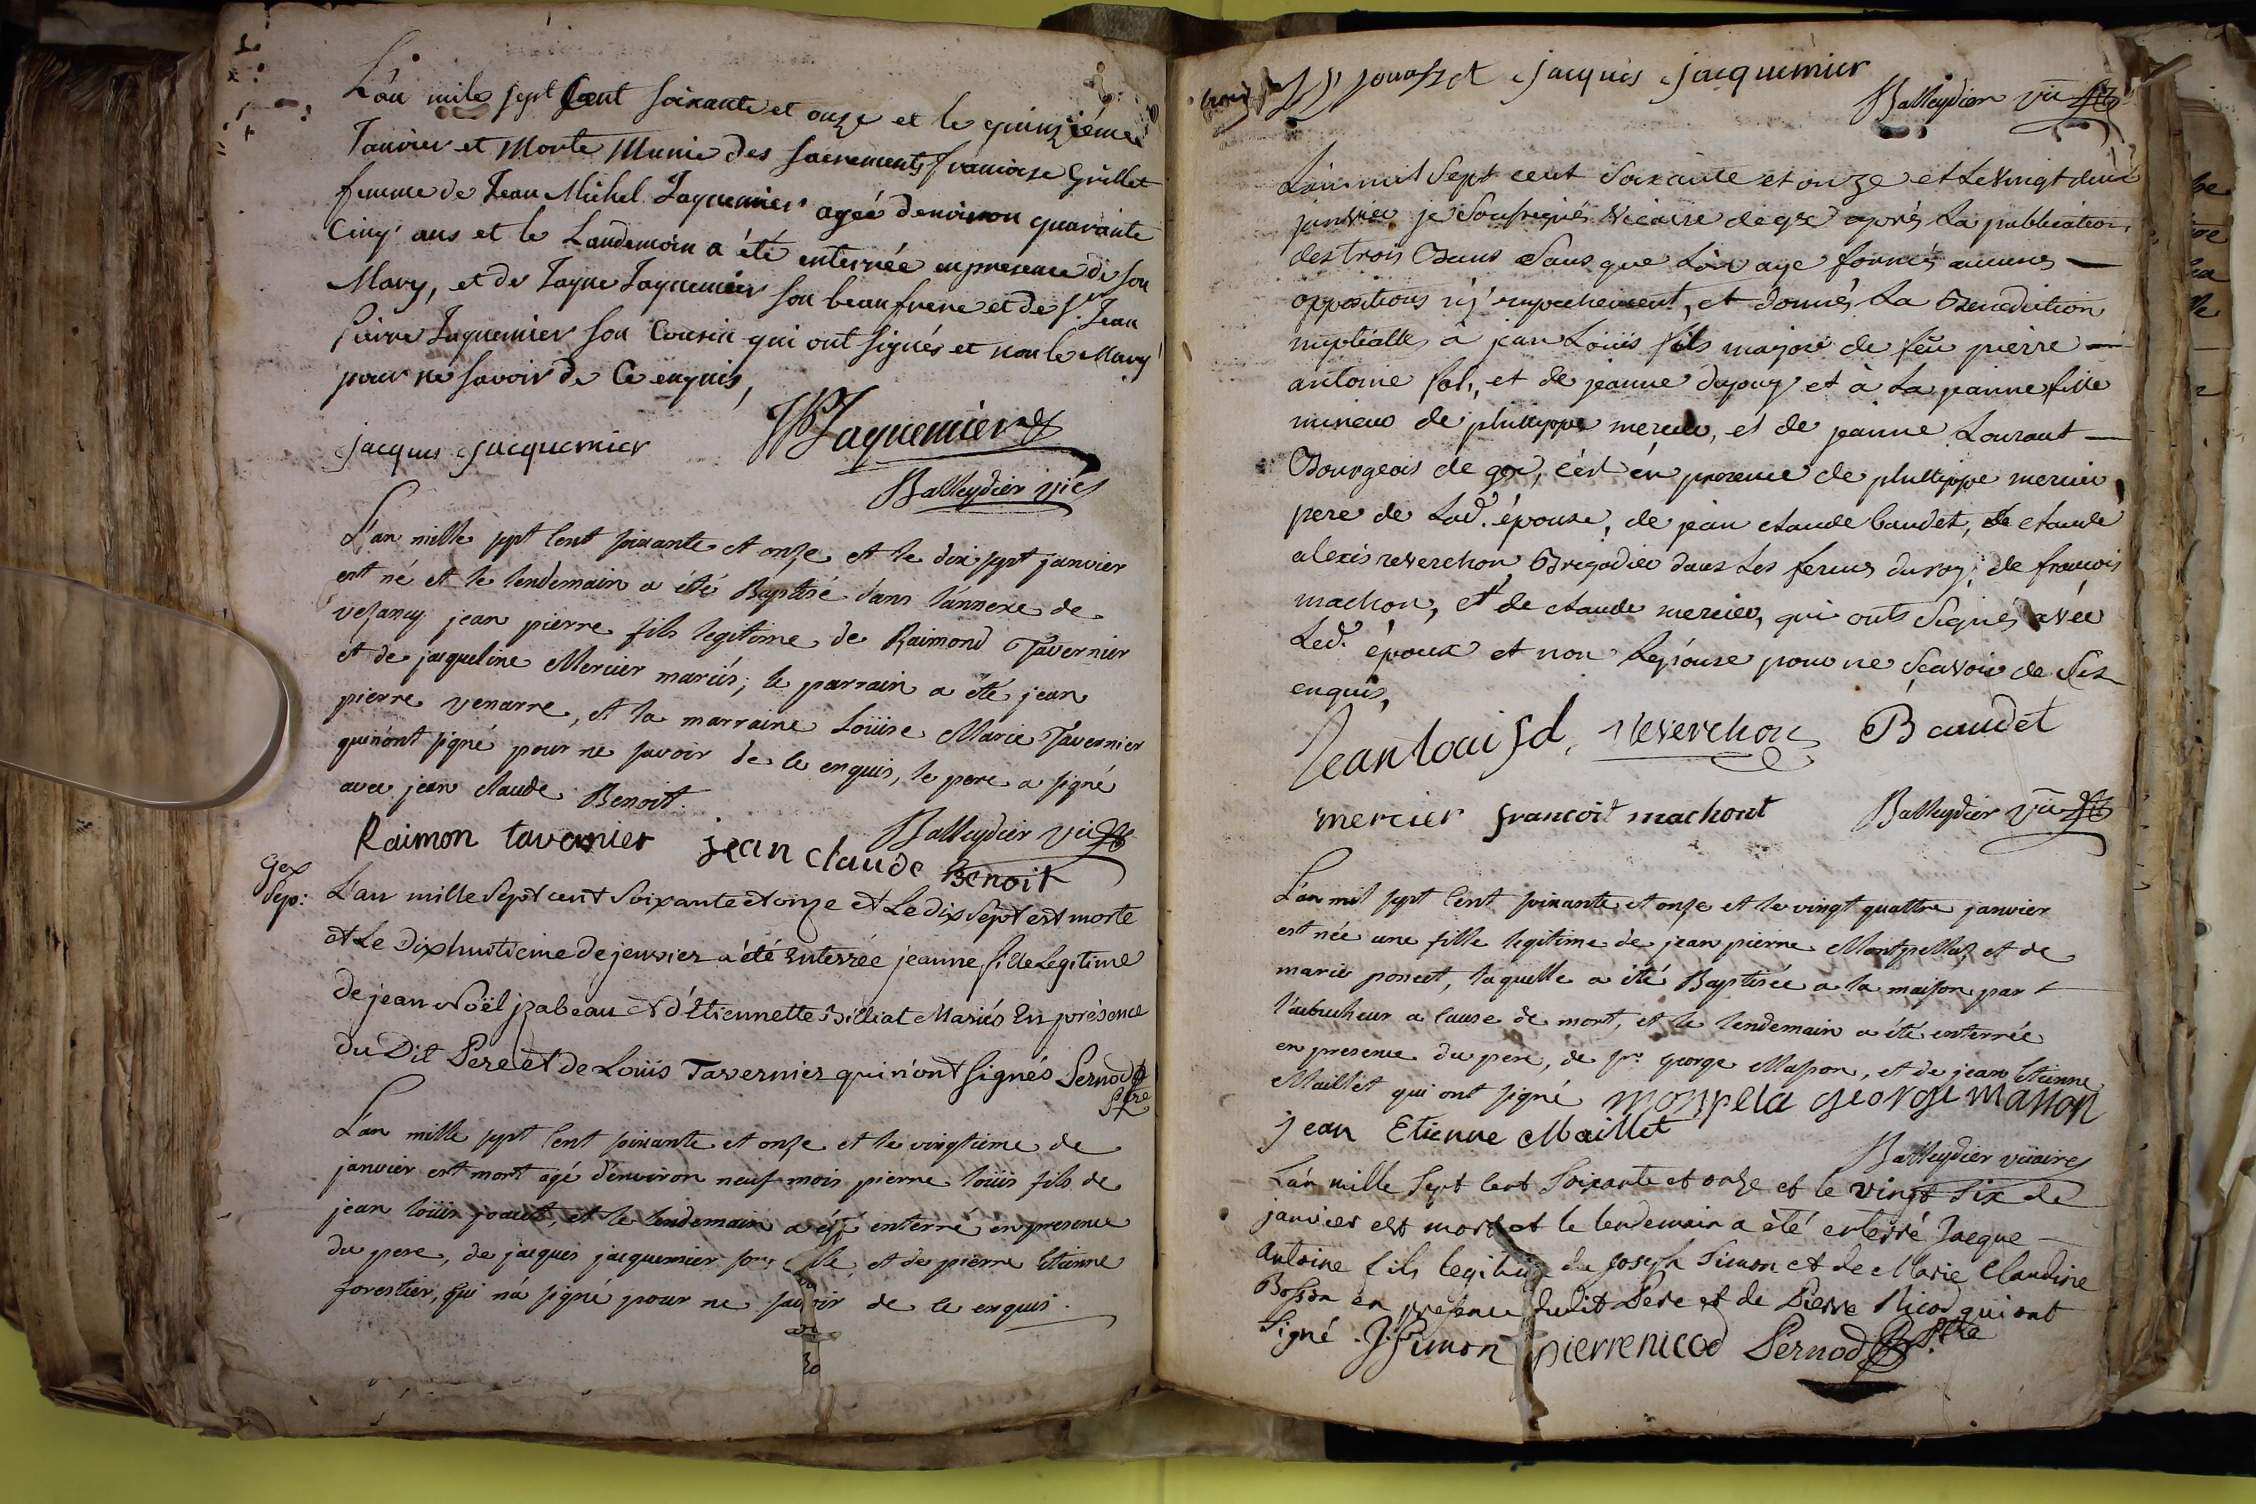 L'an mile sept Cent soixante et onze et le quinzième
Janvier et Morte Munie des sacrements francoise Grillet
femme de Jean Michel Jaquemier agée denviron quarante
Cinq ans et le Landemain a été enterrée en presence de son
Mary, et de Jaque Jaquemier son beaufrere et de Sr. Jean
Pierre Jaquemier son Cousin qui ont signés et non le Mary
pour ne savoir de Ce enquis,
jacques jacquemier
JP Jaquemier
Balleydier vic
L'an mille sept cent soixante et onze et le dix sept janvier
est né et le lendemain a été Baptisé dans l'annexe de
vesancy jean pierre fils legitime de Raimond Tavernier
et de jacqueline Mercier mariés; le parrain a été jean
pierre venarre, et la marraine Loüise Marie Tavernier
qui n'ont signé pour ne savoir de ce enquis, le pere a signé
avec jean claude Benoit.
Balleydier vic
Raimon tavernier jean claude Benoit
Gex
Sep:
L'an mille Sept cent Soixante et onze et Le dix Sept est morte
et Le Dixhuitieme de jenvier a été Enterrée jeanne fille Legitime
de jean Noël jzabeau & d'Etiennette Billiat Mariés En présence
du Dit Pere et de Loüis Tavernier qui n'ont Signés Pernod
Ptre
L'an mille sept cent soixante et onze et le vingtieme de
janvier est mort agé d'environ neuf mois pierre loüis fils de
jean loüis et le lendemain a été enterré en presence
du pere, de jacques jacquemier et de pierre Etienne
forestier, qui n'a signé pour ne savoir de ce enquis.
jacques jacquemier
Balleydier vic
L'an mil Sept cent Soixante et onze et Le vingt deux
janvier je Soussigné Vicaire de gex après La publication
des trois Bans Sans que L'on aye formés aucunes
oppositions n'y empechement, et donnés La Benediction
nuptialle à jean Loüis fils majeur de feu pierre
antoine Sol, et de jeanne dupuy et à La jeanne fille
mineur de philippe mercier, et de jeanne Lourant
Bourgeois de gex, c'est en presence de philippe mercier
pere de Lad. épouse, de jean claude baudet, de claude
alexis reverchon Brigadier dans Les fermes du roy, de francois
machon, et de claude mercier, qui onts Signés avec
Led. époux et non Lepouse pour ne Scavoir de Ces
enquis,
Jean Loui Sol, reverchon Baudet
mercier francois machont Balleydier vic
L'an mil sept cent soixante et onze et le vingt quattre janvier
est née une fille legitime de jean pierre Montpellaz et de
marie poncet, laquelle a été Baptisée a la maison par
l'acucheur a cause de mort, et le lendemain a été enterrée
en presence du pere, de Sr. george Masson, et de jean Etienne
Maillet qui ont signé monpela george masson
jean Etienne Maillet
Balleydier vicaire
L'an mille Sept Cent Soixante et onze et le vingt Six de
janvier est mort et le lendemain a été enterré Jacque
Antoine fils legitime de Joseph Simon et de Marie Claudine
Bosson en presence dudit Pere et de Pierre Nicod qui ont
signé. J Simon pierre nicod Pernod Ptre